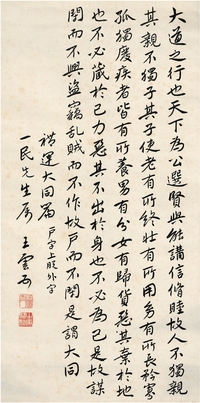 大道之行也天下為公選賢與能講信脩睦故人不獨親
其親不獨子其子使老有所終壯有所用幼有所長矜寡
孤獨廢疾者皆有所養男有分女有歸貨惡其棄於地
也不必藏於己力惡其不出於身也不必為己是故謀
閉而不興盜竊乱賊而不作故戶而不閉是謂大同
禮運大同篇 戶字上脫外字
一民先生屬 王雲五